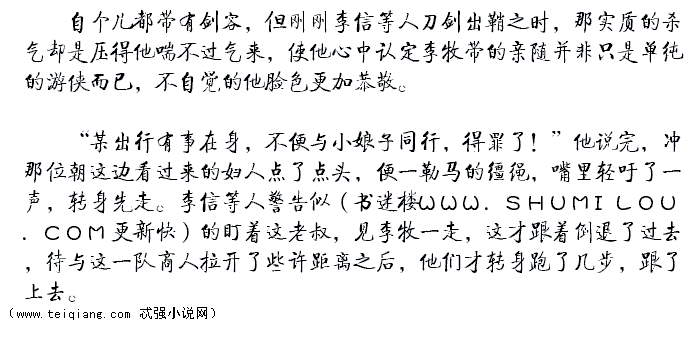 自个儿都带有剑客，但刚刚李信等人刀剑出鞘之时，那实质的杀
气却是压得他喘不过气来，使他心中认定李牧带的亲随并非只是单纯
的游侠而已，不自觉的他脸色更加恭敬。
“某出行有事在身，不便与小娘子同行，得罪了！”他说完，冲
那位朝这边看过来的妇人点了点头，便一勒马的缰绳，嘴里轻吁了一
声，转身先走。李信等人警告似（书迷楼ＷＷＷ．ＳＨＵＭＩＬＯＵ
．ＣＯＭ更新快）的盯着这老叔，见李牧一走，这才跟着倒退了过去
，待与这一队商人拉开了些许距离之后，他们才转身跑了几步，跟了
上去。
（www.teiqiang.com 忒强小说网）